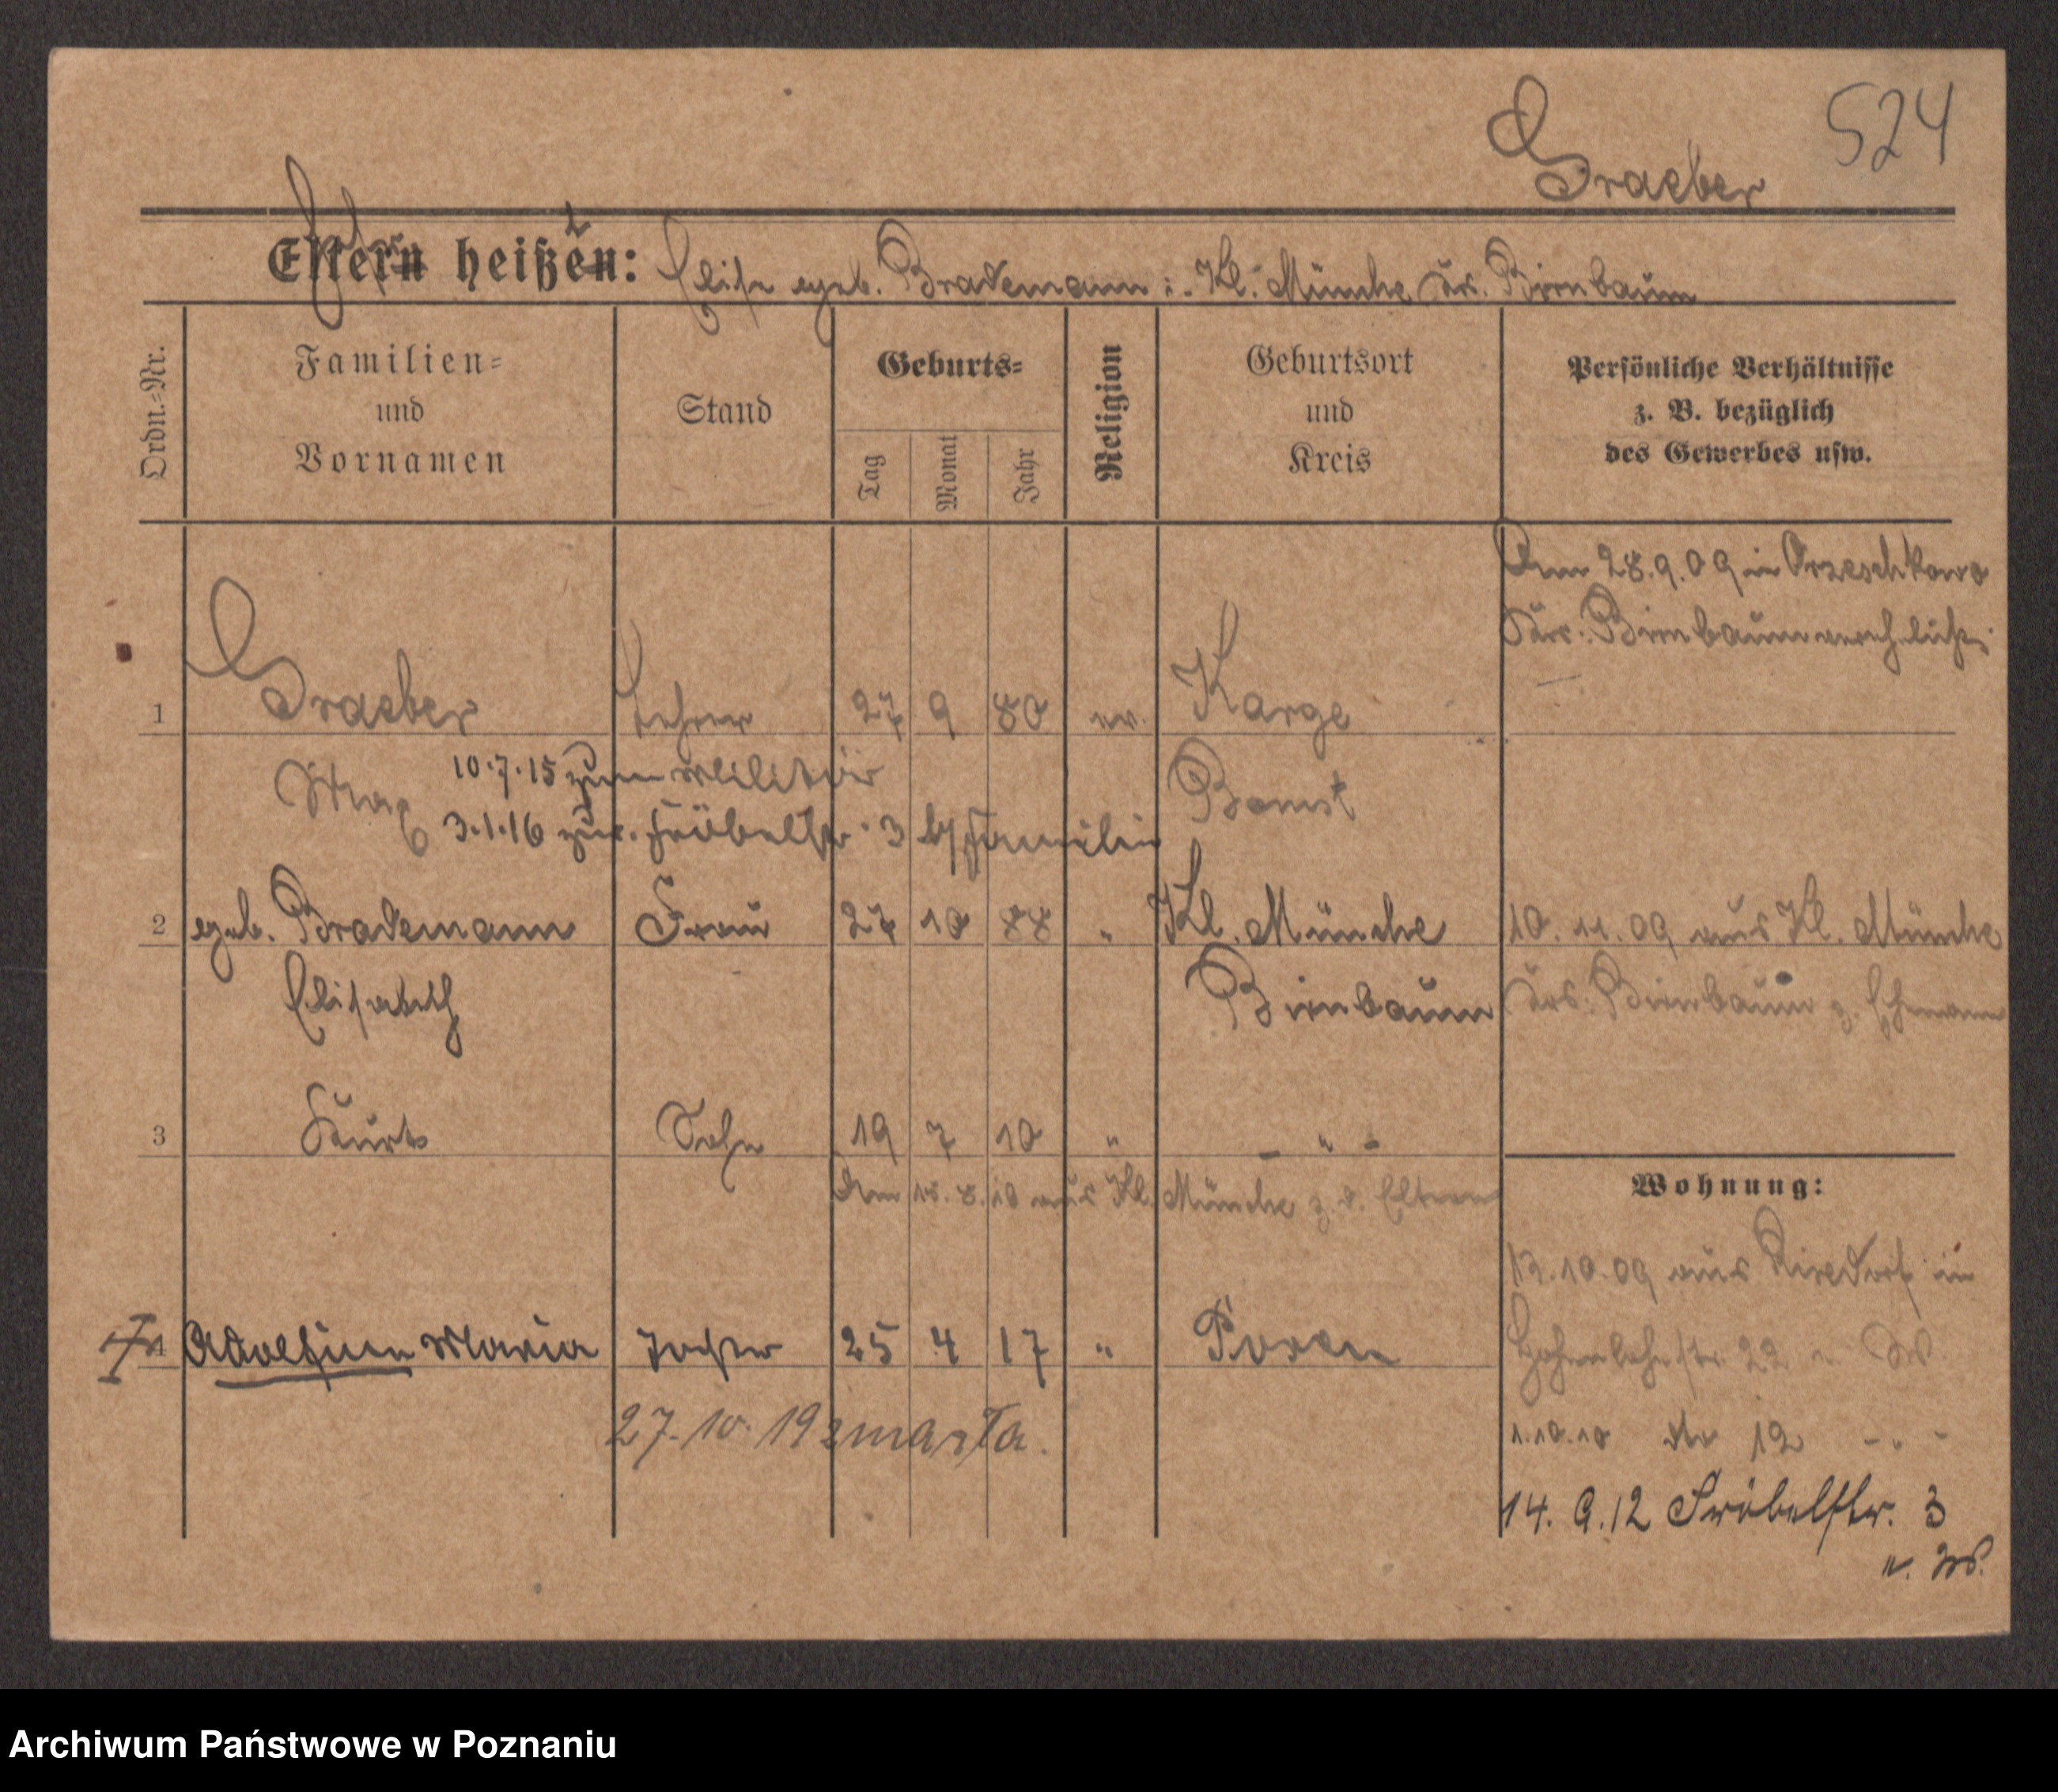 524
Graeber
Eltern heißen: Elise geb. Brademann i. Kl. Münche Krs. Birnbaum
Ordn.=Nr.
Familien=
und
Vornamen
Stand
Geburts=
Tag
Monat
Jahr
Religion
Geburtsort
und
Kreis
Persönliche Verhältnisse
z. B. bezüglich
des Gewerbes usw.
Am 28.9.09 in Orzeschkowo
Krs. Birnbaum verehelicht.
1 Graeber Lehrer 27 9 80 ev. Karge
Max 10.7.15 zum Militär Bomst
3.1.16 zur. Fröbelstr. 3 Familie
2 geb. Brademann Frau 27 10 88 " Kl. Münche 10. 11. 09 aus Kl. Münche
Elisabeth Birnbaum Krs. Birnbaum z. Ehemann
3 Kurt Sohn 19 7 10 " - " -
Am 18. 8. 10 aus Kl. Münche z. d. Eltern
Wohnung:
13.10.09 aus Rixdorf in
4 Maria Tochter 25 4 17 " Posen
Hohenlohestr. 22
27. 10. 19 zmarła.
1.10.10 12 - " -
14. 9. 12 Fröbelstr. 3
Archiwum Państwowe w Poznaniu